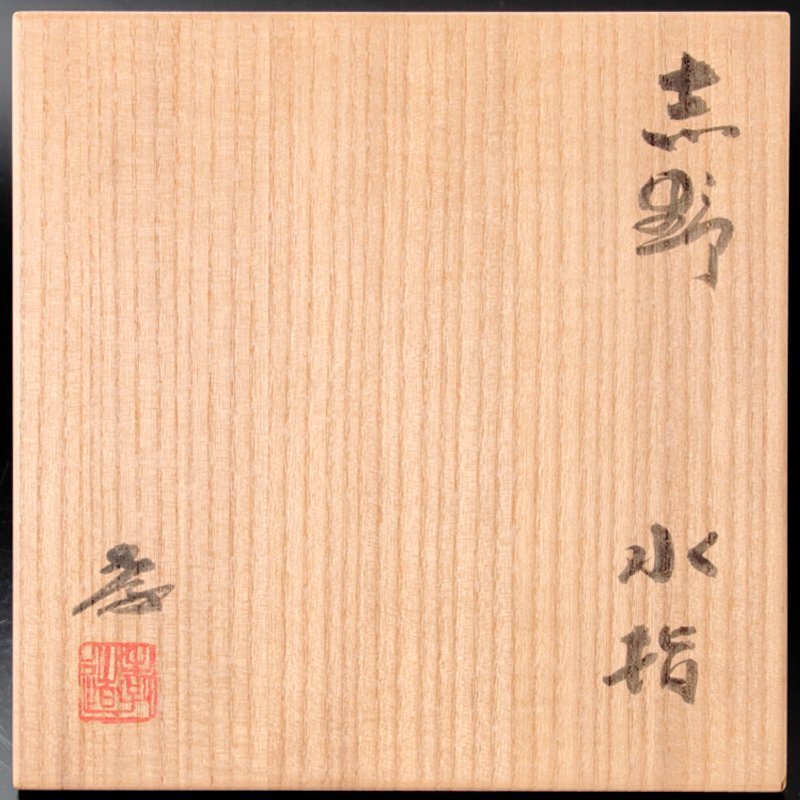 志野
水指